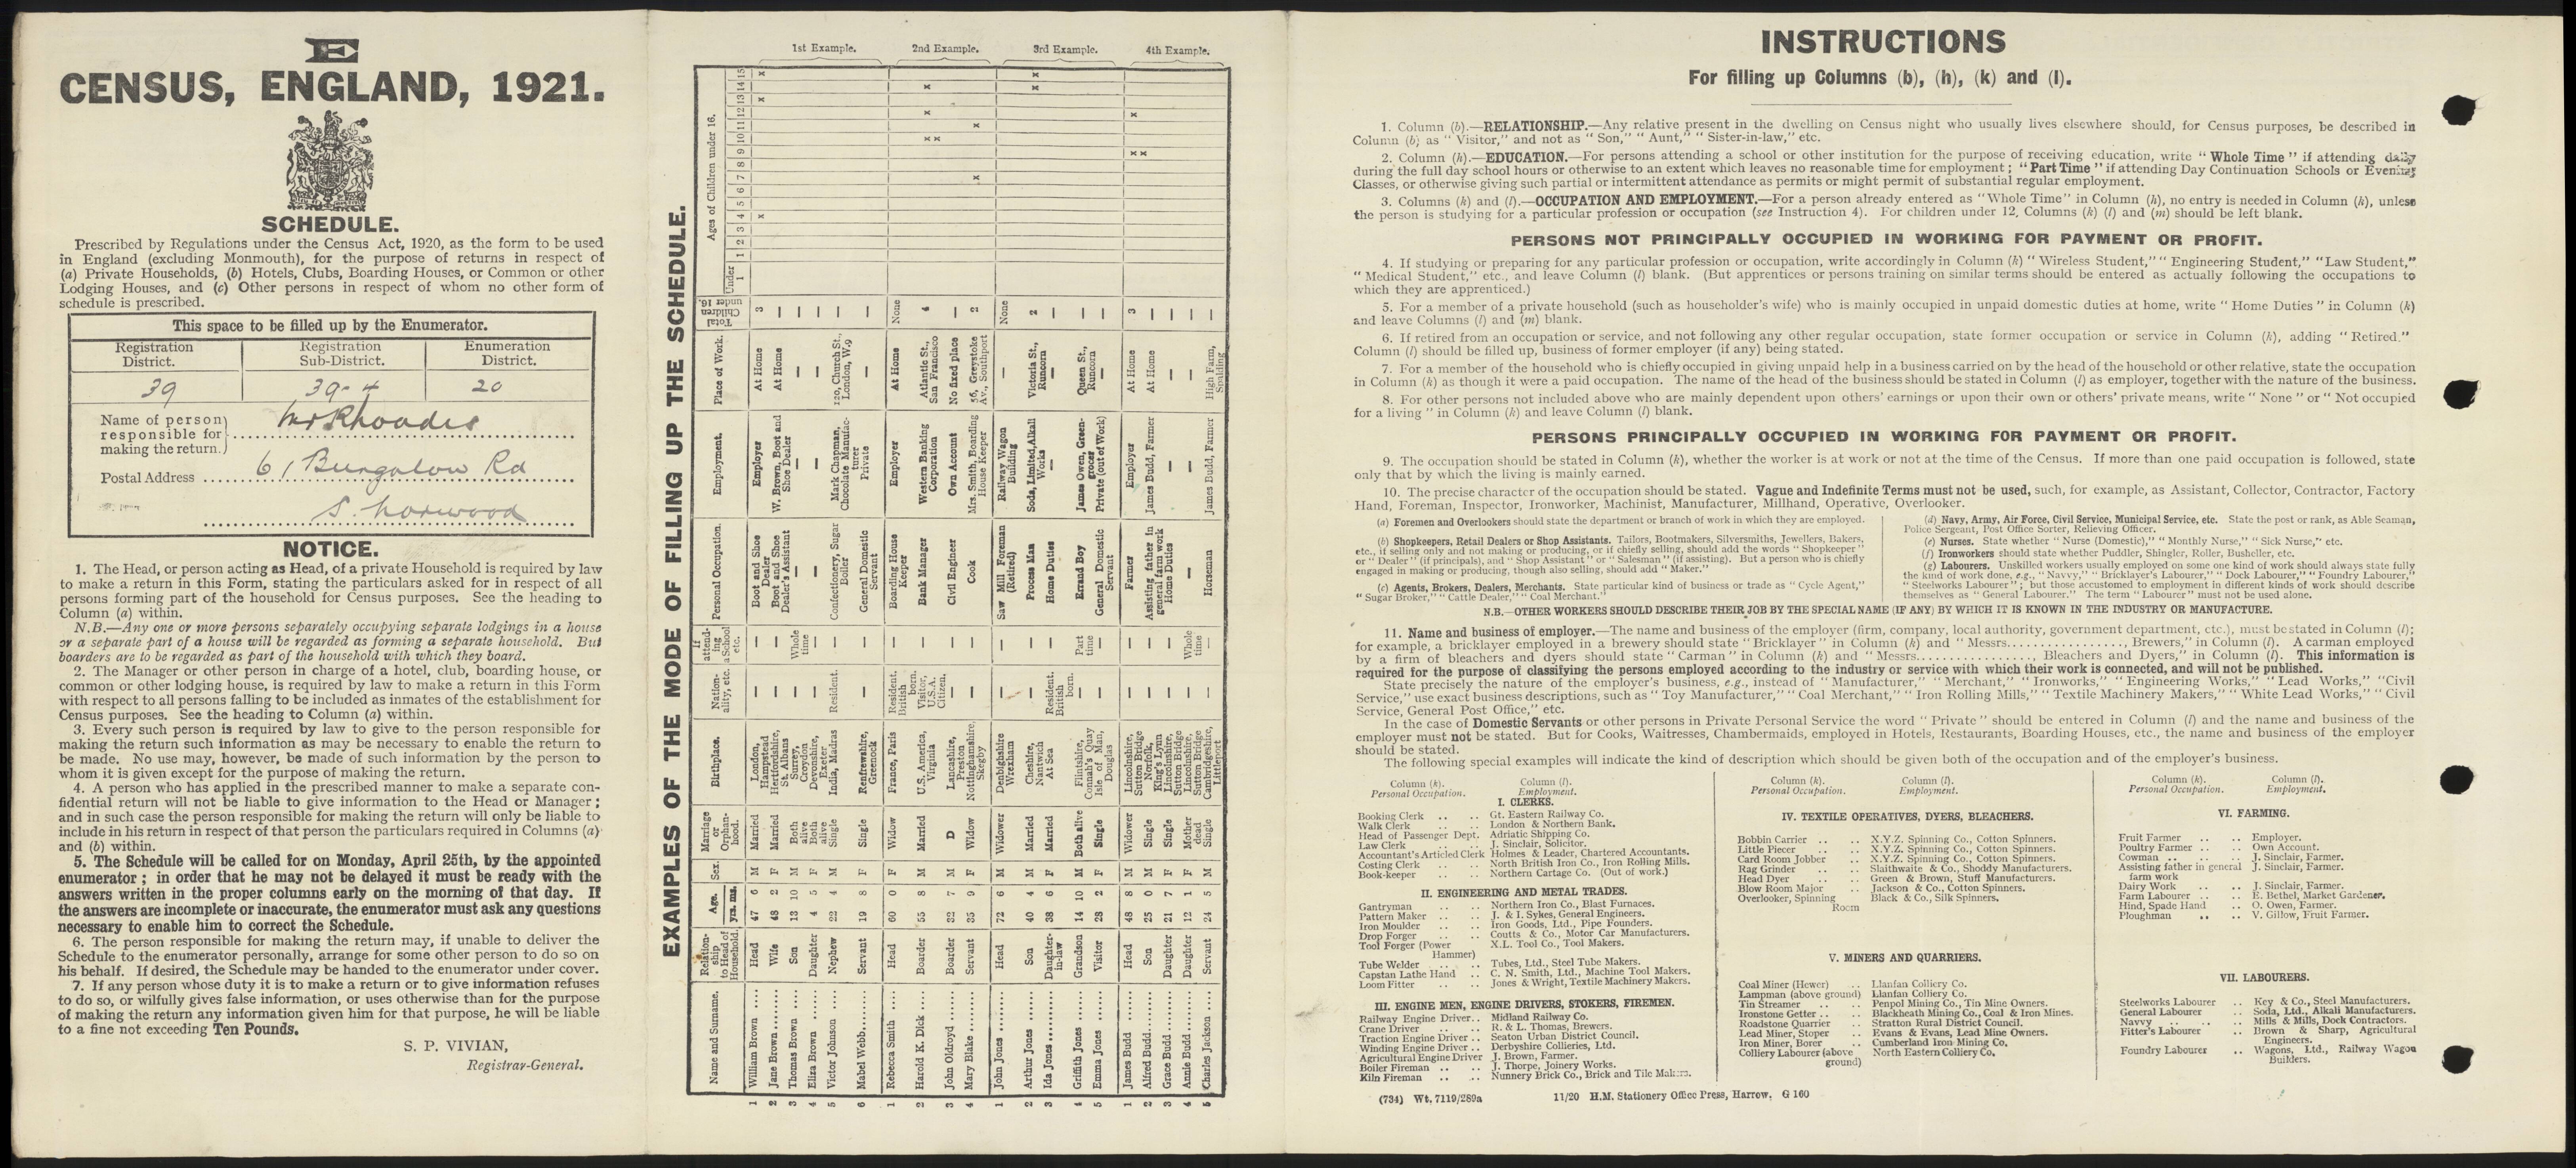 E
CENSUS, ENGLAND, 1921.
SCHEDULE.
Prescribed by Regulations under the Census Act, 1920, as the form to be used
in England (excluding Monmouth), for the purpose of returns in respect of
(a) Private Households, (b) Hotels, Clubs, Boarding Houses, or Common or other
Lodging Houses, and (c) Other persons in respect of whom no other form of
schedule is prescribed.
This space to be filled up by the Enumerator.
Registration District. Registration Sub-District. Enumeration District.
39 39-4 20
Name of person responsible for making the return. Mr Rhoades
Postal Address 61 Bungalow Rd
S. Norwood
NOTICE.
1. The Head, or person acting as Head, of a private Household is required by law
to make a return in this Form, stating the particulars asked for in respect of all
persons forming part of the household for Census purposes. See the heading to
Column (a) within.
N.B.—Any one or more persons separately occupying separate lodgings in a house
or a separate part of a house will be regarded as forming a separate household. But
boarders are to be regarded as part of the household with which they board.
2. The Manager or other person in charge of a hotel, club, boarding house, or
common or other lodging house, is required by law to make a return in this Form
with respect to all persons falling to be included as inmates of the establishment for
Census purposes. See the heading to Column (a) within.
3. Every such person is required by law to give to the person responsible for
making the return such information as may be necessary to enable the return to
be made. No use may, however, be made of such information by the person to
whom it is given except for the purpose of making the return.
4. A person who has applied in the prescribed manner to make a separate con-
fidential return will not be liable to give information to the Head or Manager ;
and in such case the person responsible for making the return will only be liable to
include in his return in respect of that person the particulars required in Columns (a)
and (b) within.
5. The Schedule will be called for on Monday, April 25th, by the appointed
enumerator ; in order that he may not be delayed it must be ready with the
answers written in the proper columns early on the morning of that day. If
the answers are incomplete or inaccurate, the enumerator must ask any questions
necessary to enable him to correct the Schedule.
6. The person responsible for making the return may, if unable to deliver the
Schedule to the enumerator personally, arrange for some other person to do so on
his behalf. If desired, the Schedule may be handed to the enumerator under cover.
7. If any person whose duty it is to make a return or to give information refuses
to do so, or wilfully gives false information, or uses otherwise than for the purpose
of making the return any information given him for that purpose, he will be liable
to a fine not exceeding Ten Pounds.
S. P. VIVIAN,
Registrar-General.
EXAMPLES OF THE MODE OF FILLING UP THE SCHEDULE.
Name and Surname. Relationship to Head of Household. Age. yrs. ms. Sex. Marriage or Orphanhood. Birthplace. Nationality, etc. If attending a School etc. Personal Occupation. Employment. Place of Work. Total Children under 16. Ages of Children under 16.
Under 1 1 2 3 4 5 6 7 8 9 10 11 12 13 14 15
1st Example.
1 William Brown .... Head 47 6 M Married London, Hampstead — — Boot and Shoe Dealer Employer At Home 3 x x x
2 Jane Brown ....... Wife 48 2 F Married Hertfordshire, St. Albans — — Boot and Shoe Dealer's Assistant W. Brown, Boot and Shoe Dealer At Home —
3 Thomas Brown .... Son 13 10 M Both alive Surrey, Croydon — Whole time — — — —
4 Eliza Brown ..... Daughter 4 5 F Both alive Devonshire, Exeter — — — — — —
5 Victor Johnson .... Nephew 22 4 M Single India, Madras Resident. — Confectionery, Sugar Boiler Mark Chapman, Chocolate Manufacturer 120, Church St., London, W.9 —
6 Mabel Webb...... Servant 19 8 F Single Renfrewshire, Greenock — — General Domestic Servant Private — —
2nd Example.
1 Rebecca Smith .... Head 60 0 F Widow France, Paris Resident. British born. — Boarding House Keeper Employer At Home None
2 Harold K. Dick .... Boarder 55 8 M Married U.S. America, Virginia Visitor, U.S.A. Citizen. — Bank Manager Western Banking Corporation Atlantic St., San Francisco 4 x x x x
3 John Oldroyd ...... Boarder 32 7 M D Lancashire, Preston — — Civil Engineer Own Account No fixed place —
4 Mary Blake ....... Servant 35 9 F Widow Nottinghamshire, Skegby — — Cook Mrs. Smith, Boarding House Keeper 56, Greystoke Av., Southport 2 x x
3rd Example.
1 John Jones ....... Head 72 6 M Widower Denbighshire Wrexham — — Saw Mill Foreman (Retired) Railway Wagon Building — None
2 Arthur Jones ..... Son 40 4 M Married Cheshire, Nantwich — — Process Man Soda, Limited, Alkali Works Victoria St., Runcorn 2 x x
3 Ida Jones......... Daughter-in-law 38 6 F Married At Sea Resident. British born. — Home Duties — — —
4 Griffith Jones .... Grandson 14 10 M Both alive Flintshire, Connah's Quay — Part time Errand Boy James Owen, Greengrocer Queen St., Runcorn —
5 Emma Jones ..... Visitor 28 2 F Single Isle of Man, Douglas — — General Domestic Servant Private (out of Work) — —
4th Example.
1 James Budd ...... Head 48 8 M Widower Lincolnshire, Sutton Bridge — — Farmer Employer At Home 3 x x x
2 Alfred Budd...... Son 25 0 M Single Norfolk, King's Lynn — — Assisting father in general farm work James Budd, Farmer At Home —
3 Grace Budd ...... Daughter 21 7 F Single Lincolnshire, Sutton Bridge — — Home Duties — — —
4 Annie Budd ...... Daughter 12 1 F Mother dead Lincolnshire, Sutton Bridge — Whole time — — — —
5 Charles Jackson .... Servant 24 5 M Single Cambridgeshire, Littleport — — Horseman James Budd, Farmer High Farm, Spalding —
INSTRUCTIONS
For filling up Columns (b), (h), (k) and (l).
1. Column (b).—RELATIONSHIP.—Any relative present in the dwelling on Census night who usually lives elsewhere should, for Census purposes, be described in
Column (b) as “ Visitor,” and not as “ Son,” “ Aunt,” “ Sister-in-law,” etc.
2. Column (h).—EDUCATION.—For persons attending a school or other institution for the purpose of receiving education, write “ Whole Time ” if attending daily
during the full day school hours or otherwise to an extent which leaves no reasonable time for employment ; “ Part Time ” if attending Day Continuation Schools or Evening
Classes, or otherwise giving such partial or intermittent attendance as permits or might permit of substantial regular employment.
3. Columns (k) and (l).—OCCUPATION AND EMPLOYMENT.—For a person already entered as “Whole Time” in Column (h), no entry is needed in Column (k), unless
the person is studying for a particular profession or occupation (see Instruction 4). For children under 12, Columns (k) (l) and (m) should be left blank.
PERSONS NOT PRINCIPALLY OCCUPIED IN WORKING FOR PAYMENT OR PROFIT.
4. If studying or preparing for any particular profession or occupation, write accordingly in Column (k) “ Wireless Student,” “ Engineering Student,” “Law Student,”
“ Medical Student,” etc., and leave Column (l) blank. (But apprentices or persons training on similar terms should be entered as actually following the occupations to
which they are apprenticed.)
5. For a member of a private household (such as householder's wife) who is mainly occupied in unpaid domestic duties at home, write “ Home Duties ” in Column (k)
and leave Columns (l) and (m) blank.
6. If retired from an occupation or service, and not following any other regular occupation, state former occupation or service in Column (k), adding “ Retired.”
Column (l) should be filled up, business of former employer (if any) being stated.
7. For a member of the household who is chiefly occupied in giving unpaid help in a business carried on by the head of the household or other relative, state the occupation
in Column (k) as though it were a paid occupation. The name of the head of the business should be stated in Column (l) as employer, together with the nature of the business.
8. For other persons not included above who are mainly dependent upon others' earnings or upon their own or others' private means, write “ None ” or “ Not occupied
for a living ” in Column (k) and leave Column (l) blank.
PERSONS PRINCIPALLY OCCUPIED IN WORKING FOR PAYMENT OR PROFIT.
9. The occupation should be stated in Column (k), whether the worker is at work or not at the time of the Census. If more than one paid occupation is followed, state
only that by which the living is mainly earned.
10. The precise character of the occupation should be stated. Vague and Indefinite Terms must not be used, such, for example, as Assistant, Collector, Contractor, Factory
Hand, Foreman, Inspector, Ironworker, Machinist, Manufacturer, Millhand, Operative, Overlooker.
(a) Foremen and Overlookers should state the department or branch of work in which they are employed.
(b) Shopkeepers, Retail Dealers or Shop Assistants. Tailors, Bootmakers, Silversmiths, Jewellers, Bakers,
etc., if selling only and not making or producing, or if chiefly selling, should add the words “ Shopkeeper ”
or “ Dealer ” (if principals), and “ Shop Assistant ” or “ Salesman ” (if assisting). But a person who is chiefly
engaged in making or producing, though also selling, should add “ Maker.”
(c) Agents, Brokers, Dealers, Merchants. State particular kind of business or trade as “ Cycle Agent,”
“ Sugar Broker,” “ Cattle Dealer,” “ Coal Merchant.”
(d) Navy, Army, Air Force, Civil Service, Municipal Service, etc. State the post or rank, as Able Seaman,
Police Sergeant, Post Office Sorter, Relieving Officer.
(e) Nurses. State whether “ Nurse (Domestic),” “ Monthly Nurse,” “ Sick Nurse,” etc.
(f) Ironworkers should state whether Puddler, Shingler, Roller, Busheller, etc.
(g) Labourers. Unskilled workers usually employed on some one kind of work should always state fully
the kind of work done, e.g., “ Navvy,” “ Bricklayer's Labourer,” “ Dock Labourer,” “ Foundry Labourer,”
“ Steelworks Labourer ” ; but those accustomed to employment in different kinds of work should describe
themselves as “ General Labourer.” The term “ Labourer ” must not be used alone.
N.B.—OTHER WORKERS SHOULD DESCRIBE THEIR JOB BY THE SPECIAL NAME (IF ANY) BY WHICH IT IS KNOWN IN THE INDUSTRY OR MANUFACTURE.
11. Name and business of employer.—The name and business of the employer (firm, company, local authority, government department, etc.), must be stated in Column (l);
for example, a bricklayer employed in a brewery should state “ Bricklayer ” in Column (k) and “ Messrs................., Brewers,” in Column (l). A carman employed
by a firm of bleachers and dyers should state “ Carman ” in Column (k) and “ Messrs................., Bleachers and Dyers,” in Column (l). This information is
required for the purpose of classifying the persons employed according to the industry or service with which their work is connected, and will not be published.
State precisely the nature of the employer's business, e.g., instead of “ Manufacturer,” “ Merchant,” “ Ironworks,” “ Engineering Works,” “ Lead Works,” “Civil
Service,” use exact business descriptions, such as “ Toy Manufacturer,” “ Coal Merchant,” “ Iron Rolling Mills,” “ Textile Machinery Makers,” “ White Lead Works,” “ Civil
Service, General Post Office,” etc.
In the case of Domestic Servants or other persons in Private Personal Service the word “ Private ” should be entered in Column (l) and the name and business of the
employer must not be stated. But for Cooks, Waitresses, Chambermaids, employed in Hotels, Restaurants, Boarding Houses, etc., the name and business of the employer
should be stated.
The following special examples will indicate the kind of description which should be given both of the occupation and of the employer's business.
Column (k). Personal Occupation. Column (l). Employment.
I. CLERKS.
Booking Clerk .. .. Gt. Eastern Railway Co.
Walk Clerk .. .. London & Northern Bank.
Head of Passenger Dept. Adriatic Shipping Co.
Law Clerk .. .. J. Sinclair, Solicitor.
Accountant's Articled Clerk Holmes & Leader, Chartered Accountants.
Costing Clerk .. .. North British Iron Co., Iron Rolling Mills.
Book-keeper .. .. Northern Cartage Co. (Out of work.)
II. ENGINEERING AND METAL TRADES.
Gantryman .. .. Northern Iron Co., Blast Furnaces.
Pattern Maker .. .. J. & I. Sykes, General Engineers.
Iron Moulder .. .. Iron Goods, Ltd., Pipe Founders.
Drop Forger .. .. Coutts & Co., Motor Car Manufacturers.
Tool Forger (Power Hammer) X.L. Tool Co., Tool Makers.
Tube Welder .. .. Tubes, Ltd., Steel Tube Makers.
Capstan Lathe Hand .. C. N. Smith, Ltd., Machine Tool Makers.
Loom Fitter .. .. Jones & Wright, Textile Machinery Makers.
III. ENGINE MEN, ENGINE DRIVERS, STOKERS, FIREMEN.
Railway Engine Driver .. Midland Railway Co.
Crane Driver .. .. R. & L. Thomas, Brewers.
Traction Engine Driver .. Seaton Urban District Council.
Winding Engine Driver .. Derbyshire Collieries, Ltd.
Agricultural Engine Driver J. Brown, Farmer.
Boiler Fireman .. .. J. Thorpe, Joinery Works.
Kiln Fireman .. .. Nunnery Brick Co., Brick and Tile Makers.
Column (k). Personal Occupation. Column (l). Employment.
IV. TEXTILE OPERATIVES, DYERS, BLEACHERS.
Bobbin Carrier .. .. X.Y.Z. Spinning Co., Cotton Spinners.
Little Piecer .. .. X.Y.Z. Spinning Co., Cotton Spinners.
Card Room Jobber .. X.Y.Z. Spinning Co., Cotton Spinners.
Rag Grinder .. .. Slaithwaite & Co., Shoddy Manufacturers.
Head Dyer .. .. Green & Brown, Stuff Manufacturers.
Blow Room Major .. Jackson & Co., Cotton Spinners.
Overlooker, Spinning Room Black & Co., Silk Spinners.
V. MINERS AND QUARRIERS.
Coal Miner (Hewer) .. Llanfan Colliery Co.
Lampman (above ground) Llanfan Colliery Co.
Tin Streamer .. .. Penpol Mining Co., Tin Mine Owners.
Ironstone Getter .. .. Blackheath Mining Co., Coal & Iron Mines.
Roadstone Quarrier .. Stratton Rural District Council.
Lead Miner, Stoper .. Evans & Evans, Lead Mine Owners.
Iron Miner, Borer .. Cumberland Iron Mining Co.
Colliery Labourer (above ground) North Eastern Colliery Co.
Column (k). Personal Occupation. Column (l). Employment.
VI. FARMING.
Fruit Farmer .. .. Employer.
Poultry Farmer .. .. Own Account.
Cowman .. .. .. J. Sinclair, Farmer.
Assisting father in general farm work J. Sinclair, Farmer.
Dairy Work .. .. J. Sinclair, Farmer.
Farm Labourer .. .. E. Bethel, Market Gardener.
Hind, Spade Hand .. O. Owen, Farmer.
Ploughman .. .. V. Gillow, Fruit Farmer.
VII. LABOURERS.
Steelworks Labourer .. Key & Co., Steel Manufacturers.
General Labourer .. Soda, Ltd., Alkali Manufacturers.
Navvy .. .. .. Mills & Mills, Dock Contractors.
Fitter's Labourer .. Brown & Sharp, Agricultural Engineers.
Foundry Labourer .. Wagons, Ltd., Railway Wagon Builders.
(734) Wt. 7119/289a 11/20 H.M. Stationery Office Press, Harrow. G 160